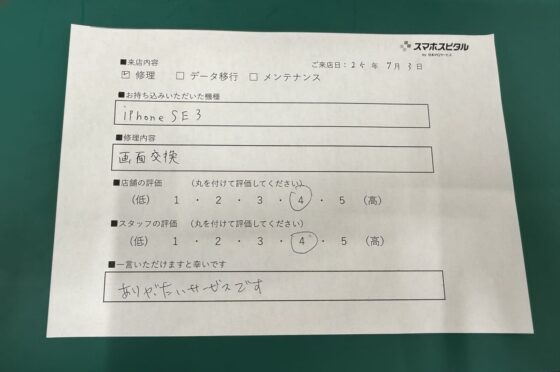 スマホスピタル
■来店内容
ご来店日：24年7月3日
☑ 修理 □ データ移行 □ メンテナンス
■お持ち込みいただいた機種
iPhone SE3
■修理内容
画面交換
■店舗の評価 （丸を付けて評価してください）
（低） 1 ・ 2 ・ 3 ・ 4 ・ 5 （高）
■スタッフの評価 （丸を付けて評価してください）
（低） 1 ・ 2 ・ 3 ・ 4 ・ 5 （高）
■一言いただけますと幸いです
ありがたいサービスです